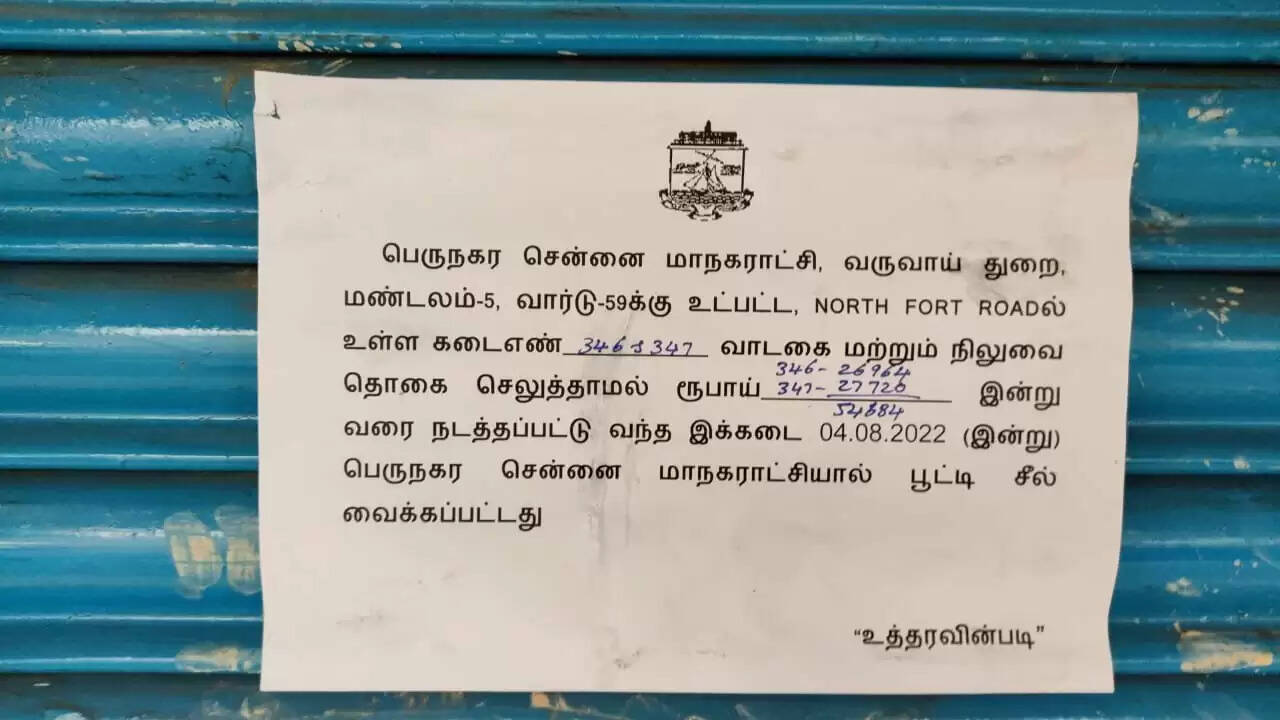 பெருநகர சென்னை மாநகராட்சி, வருவாய் துறை,
மண்டலம்-5, வார்டு-59க்கு உட்பட்ட, NORTH FORT ROADல்
உள்ள கடைஎண் 346 & 347 வாடகை மற்றும் நிலுவை
346- 26964
தொகை செலுத்தாமல் ரூபாய் 347- 27720 இன்று
54684
வரை நடத்தப்பட்டு வந்த இக்கடை 04.08.2022 (இன்று)
பெருநகர சென்னை மாநகராட்சியால் பூட்டி சீல்
வைக்கப்பட்டது
“உத்தரவின்படி”